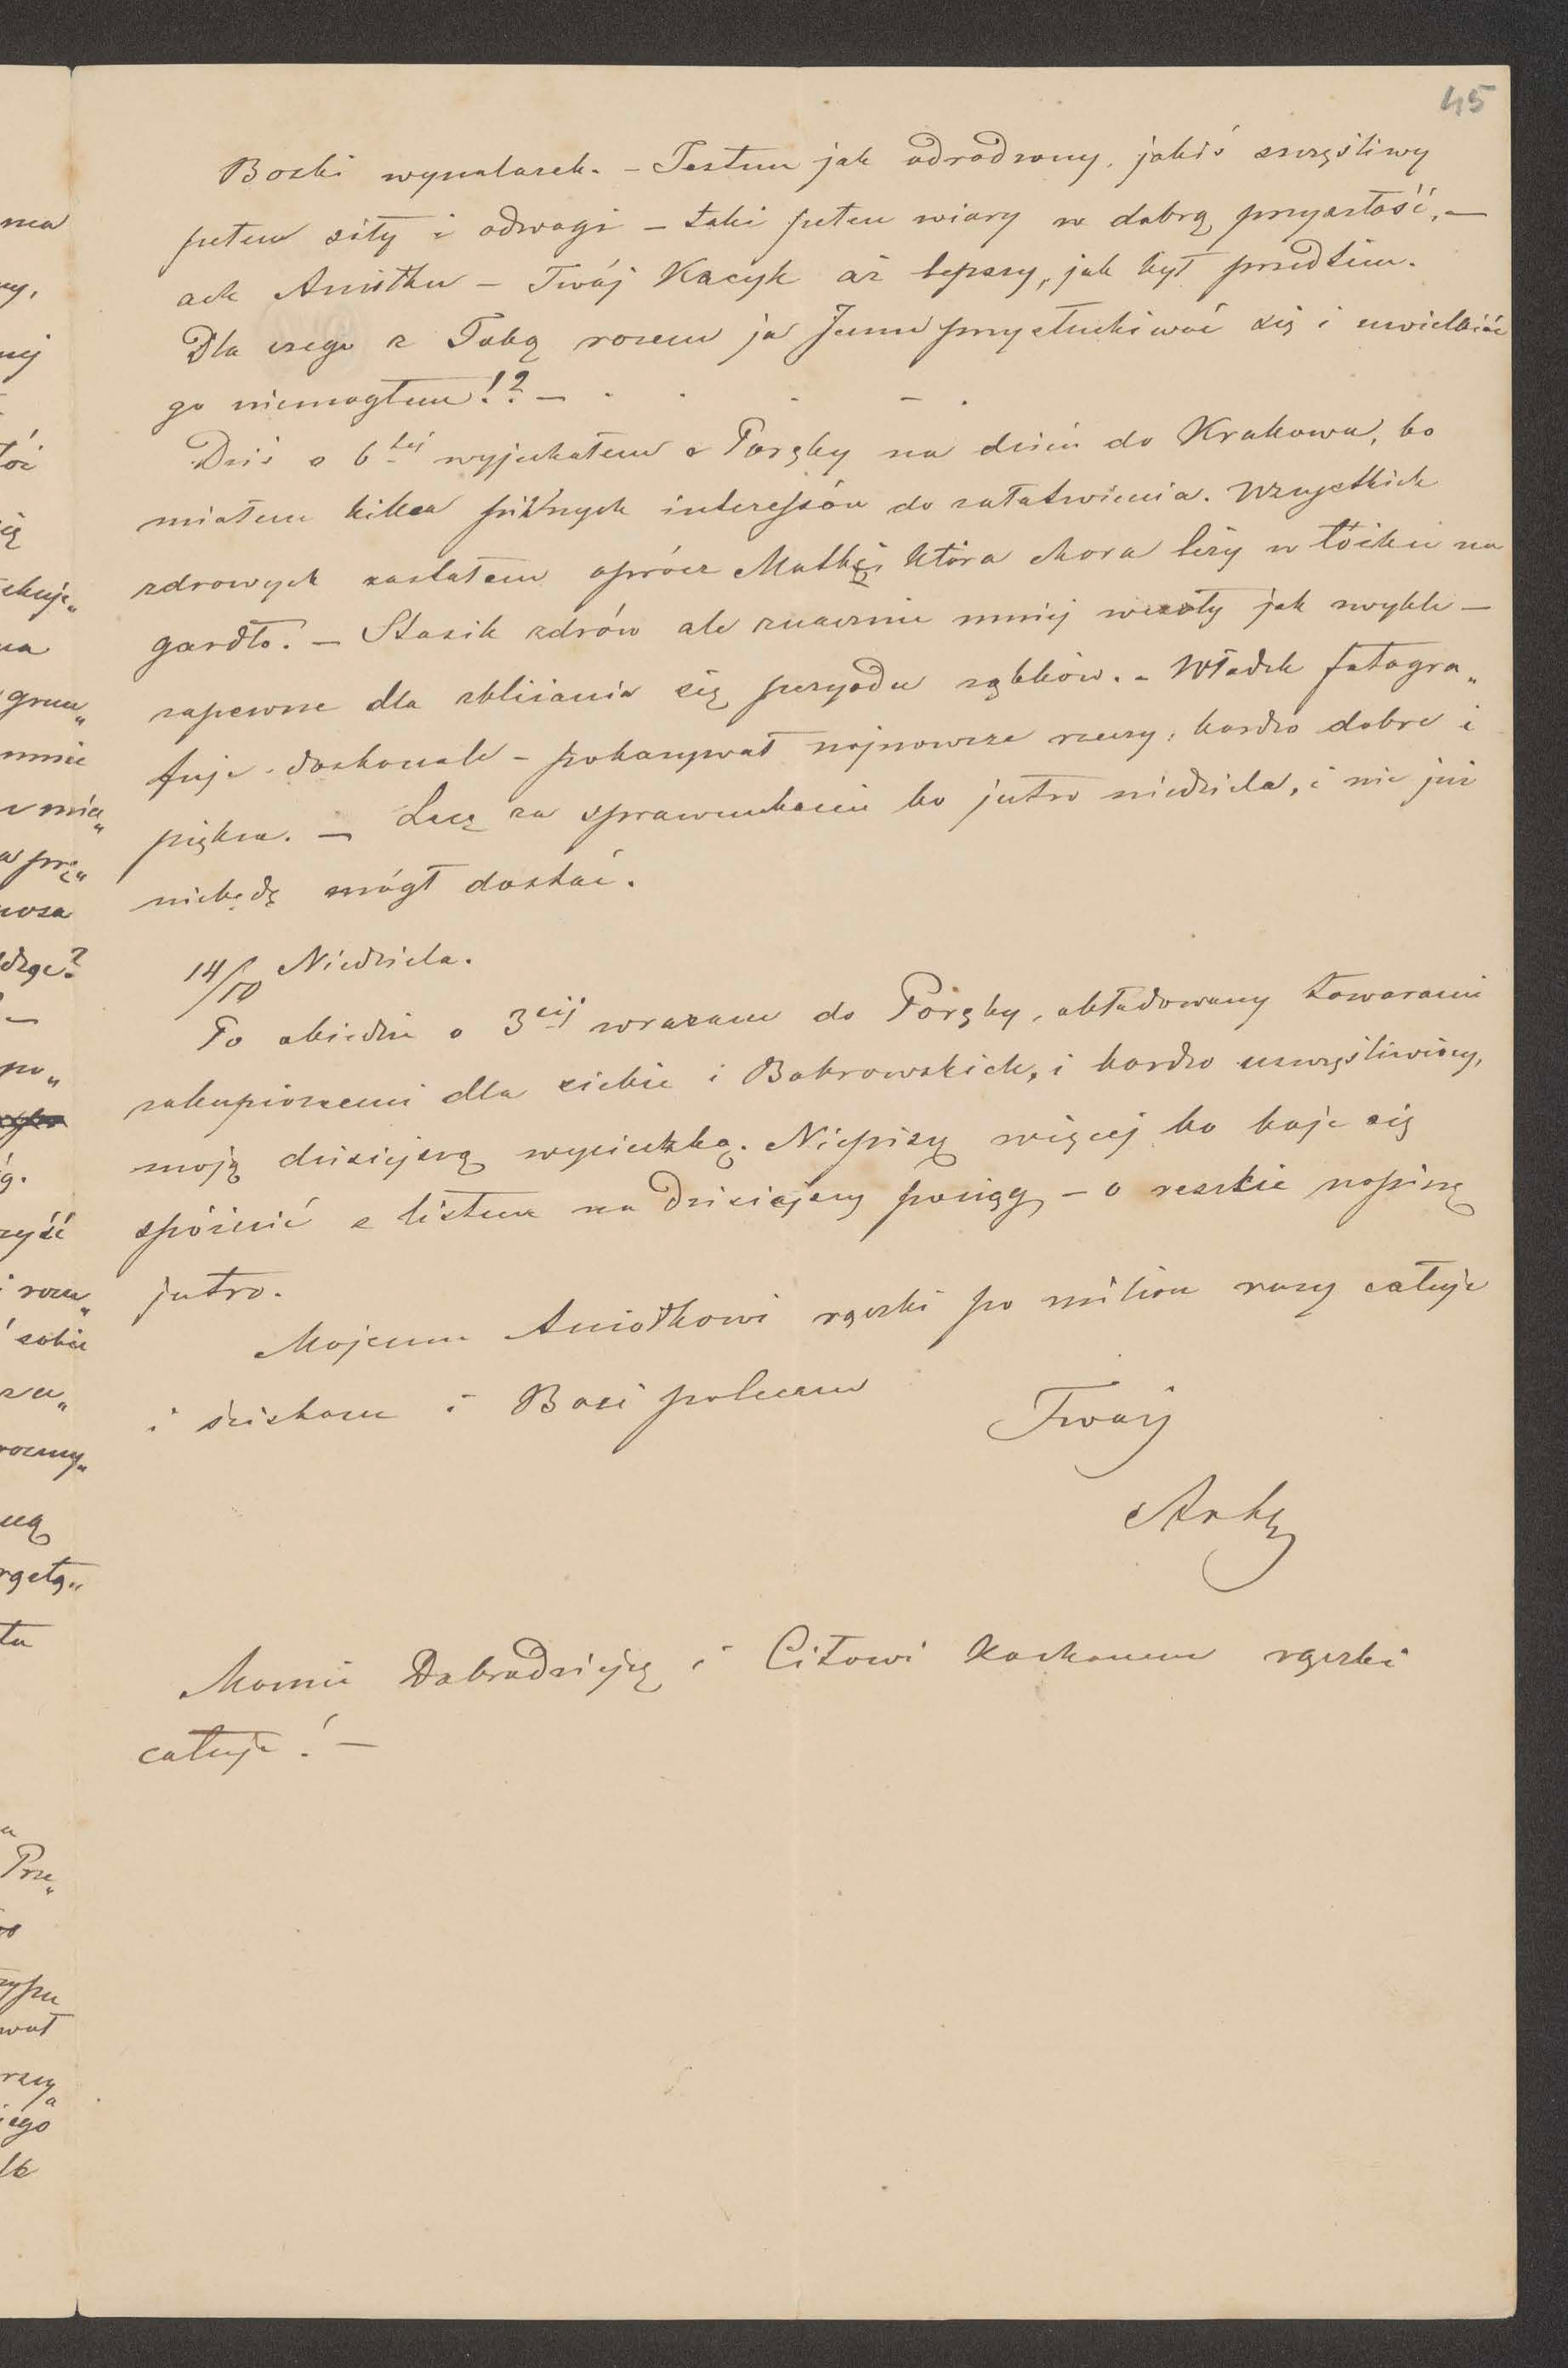 45
Boski wynalazek. – Jestem jak odrodzony, jakiś szczęśliwy
pełen siły i odwagi – taki pełen wiary w dobrą przyszłość, –
ach Aniołku – Twój Kacyk aż lepszy, jak był przedtem.
Dla czego z Tobą razem ja Jemu przysłuchiwać się i uwielbiać
go niemogłem!? – . . . – .
Dziś o 6tej wyjechałem z Poręby na dzień do Krakowa, bo
miałem kilka pilnych interessów do załatwienia. Wszystkich
zdrowych zastałem oprócz Matki która chora leży w łóżku na
gardło. – Stasik zdrów ale znacznie mniej wesoły jak zwykle –
zapewne dla zbliżania się peryodu ząbków. – Władek fotogra„
fuje doskonale – pokazywał najnowsze rzeczy, bardzo dobre i
piękne. – Lecę za sprawunkami bo jutro niedziela, i nic już
niebędę mógł dostać.
14/10 Niedziela.
Po obiedzie o 3ciej wracam do Poręby, obładowany towarami
zakupionemi dla siebie i Bobrowskich, i bardzo uszczęśliwiony,
moją dzisiejszą wycieczką. Niepiszę więcej bo boję się
spóźnić z listem na dzisiejszy pociąg – o reszcie napiszę
jutro.
Mojemu Aniołkowi rączki po milion razy całuję
i ściskam i Bozi polecam
Twój
Arty
Mamie Dobrodziejce i Citowi Kochanem rączki
całuję! –